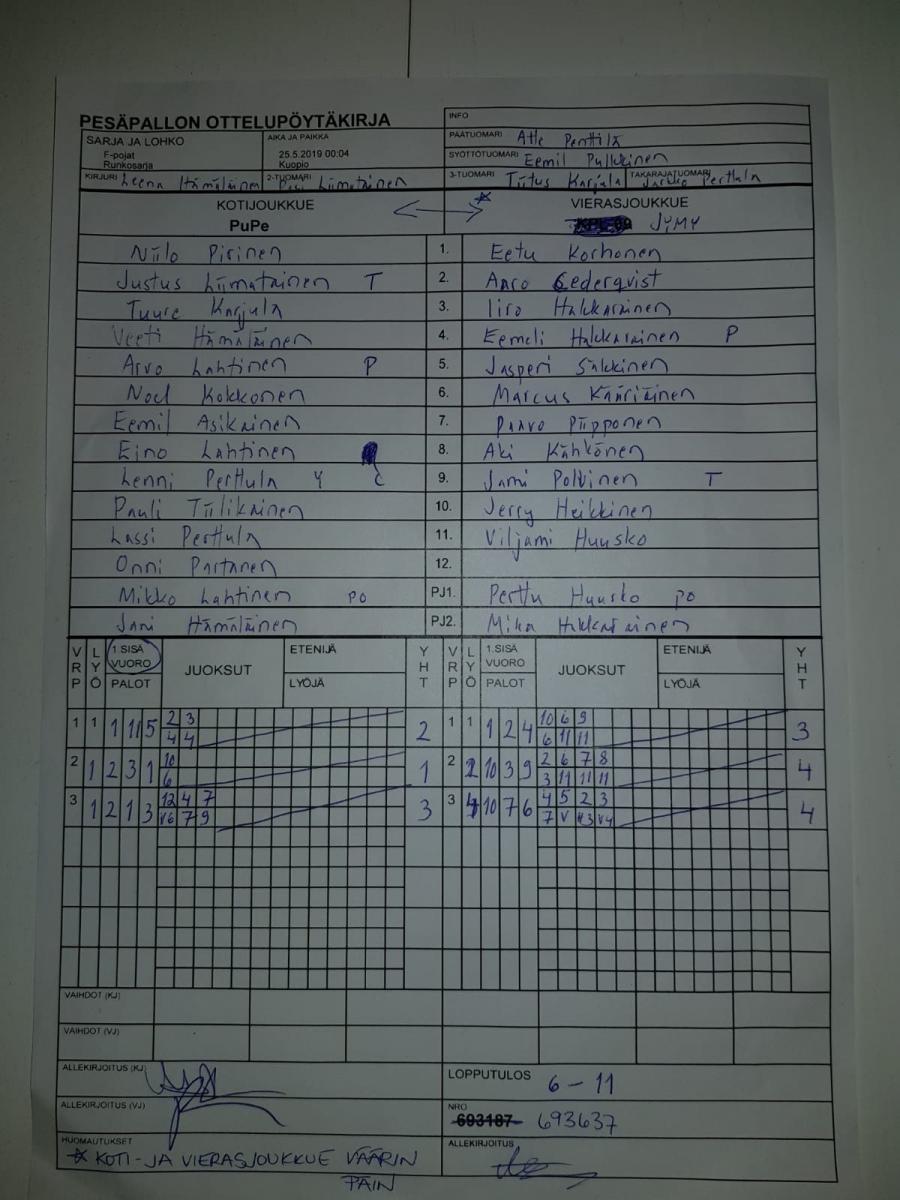 PESÄPALLON OTTELUPÖYTÄKIRJA
INFO
SARJA JA LOHKO
F-pojat
Runkosarja
AIKA JA PAIKKA
25.5.2019 00:04
Kuopio
PÄÄTUOMARI Atte Perttilä
SYÖTTÖTUOMARI Eemil Pulkkinen
KIRJURI Leena Hämäläinen 2-TUOMARI Pasi Liimatainen 3-TUOMARI Tiitus Karjula TAKARAJATUOMARI Jarkko Perttula
KOTIJOUKKUE VIERASJOUKKUE
PuPe JYMY
Niilo Pirinen 1. Eetu Korhonen
Justus Liimatainen T 2. Aaro Cederqvist
Tuure Karjula 3. Iiro Hakkarainen
Veeti Hämäläinen 4. Eemeli Hakkarainen P
Arvo Lahtinen P 5. Jasperi Sikkinen
Noel Kokkonen 6. Marcus Kääriäinen
Eemil Asikainen 7. Paavo Piipponen
Eino Lahtinen 8. Aki Kähkönen
Lenni Perttula Y C 9. Jami Polvinen T
Pauli Tiilikainen 10. Jerry Heikkinen
Lassi Perttula 11. Viljami Huusko
Onni Partanen 12.
Mikko Lahtinen PO PJ1. Perttu Huusko PO
Jani Hämäläinen PJ2. Mika Hakkarainen
VRP LYÖ 1.SISÄ VUORO PALOT JUOKSUT ETENIJÄ LYÖJÄ YHT VRP LYÖ 1.SISÄ VUORO PALOT JUOKSUT ETENIJÄ LYÖJÄ YHT
1 1 1 11 5 2 3 2 1 1 1 2 4 10 6 9 3
4 4 6 11 11
2 1 2 3 1 10 1 2 2 10 3 9 2 6 7 8 4
6 3 11 11 11
3 1 2 1 3 12 4 7 3 3 4 10 7 6 4 5 2 3 4
V6 7 9 7 V V3 V4
VAIHDOT (KJ)
VAIHDOT (VJ)
ALLEKIRJOITUS (KJ)
LOPPUTULOS 6 - 11
ALLEKIRJOITUS (VJ)
NRO 693187 693637
HUOMAUTUKSET
KOTI- JA VIERASJOUKKUE VÄÄRIN
PÄIN
ALLEKIRJOITUS